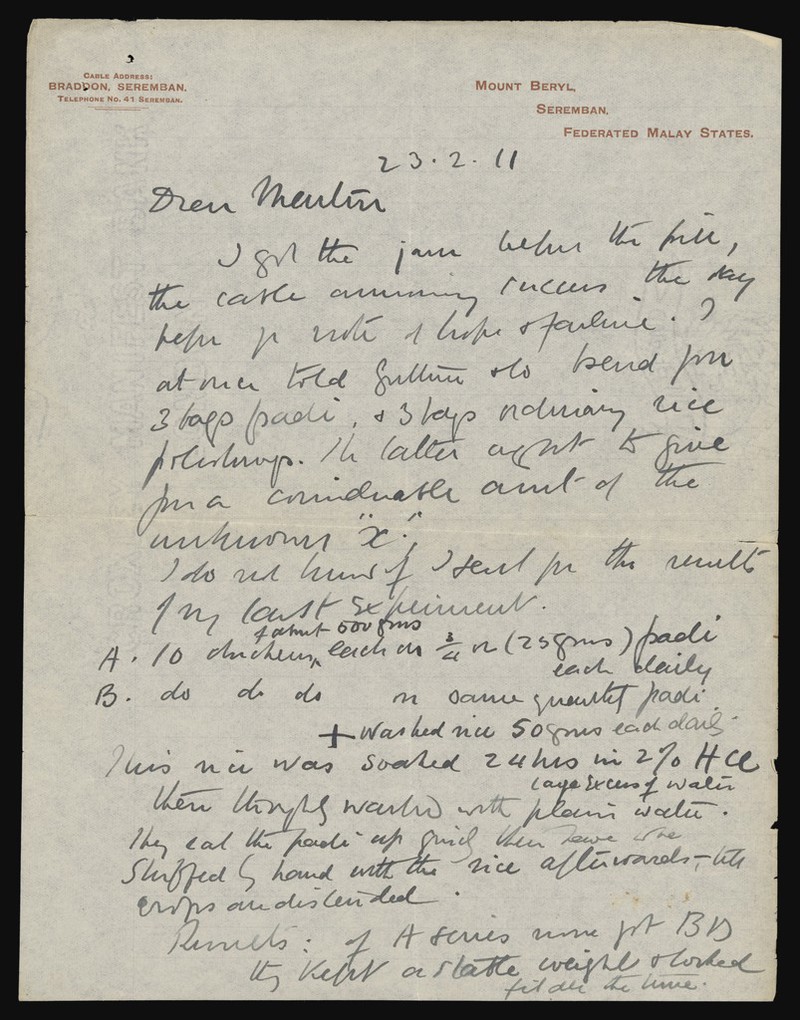 CABLE ADDRESS:
BRADDON, SEREMBAN.
TELEPHONE NO. 41 SEREMBAN.
MOUNT BERYL,
SEREMBAN,
FEDERATED MALAY STATES.
23.2.11
Dear
I got the before the
the cable announcing success the day
before yr note of hope & failure. I
at once told to send you
3 bags padi, & 3 bags ordinary rice
polishings. The latter ought to give
you a considerable amt of the
unknown "x".
I do not know if I sent you the results
of my last Experiment.
of about 500 gms
A. 10 chickens, each on 3/4 oz (25 gms) padi
each daily
B. do do do on same quantity padi
+ washed rice 50 gms each daily
This rice was soaked 24 hrs in 2% HCl
large Excess of water
then thoroughly washed with plain water.
They eat the padi up then were
stuffed by hand with the rice afterwards, till
crops are distended.
Results: of A series none got BB
they kept a stable weight & looked
fit all the time.